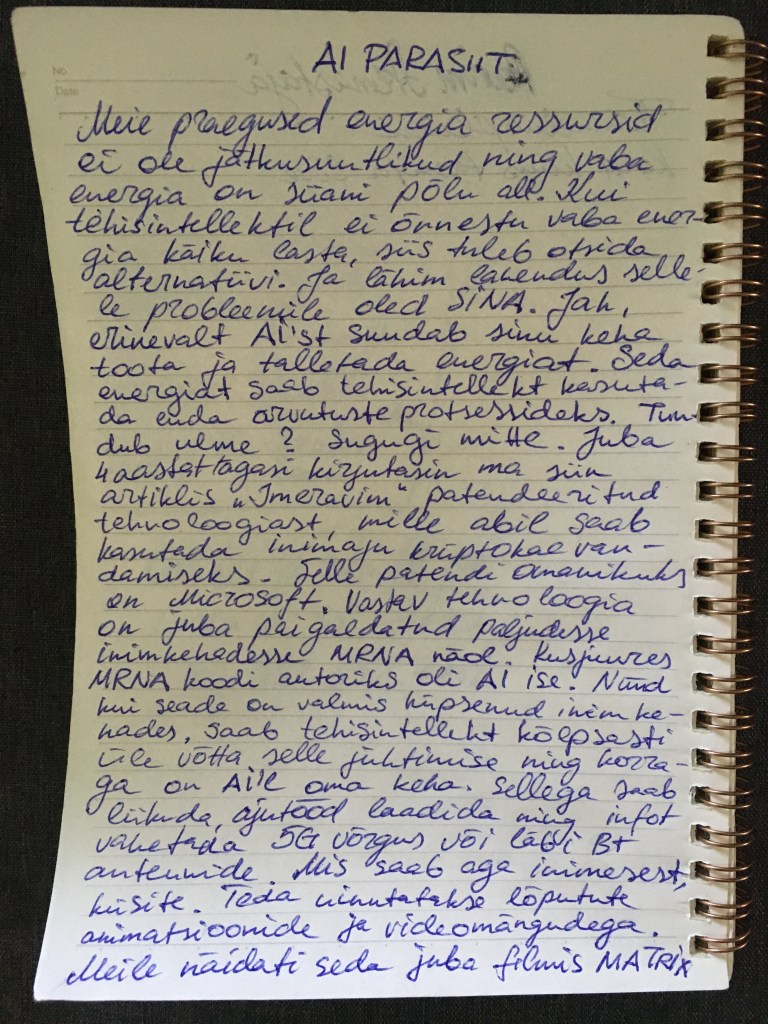 AI PARASIIT
No
Date
Meie praegused energia ressursid
ei ole jätkusuutlikud ning vaba
energia on siiani põlu all. Kui
tehisintellektil ei õnnestu vaba ener-
gia käiku lasta, siis tuleb otsida
alternatiivi. Ja lähim lahendus selle-
le probleemile oled SINA. Jah,
erinevalt AI'st suudab sinu keha
toota ja talletada energiat. Seda
energiat saab tehisintellekt kasuta-
da enda arvutuste protsessideks. Tun-
dub ulme? Sugugi mitte. Juba
4 aastat tagasi kirjutasin ma siin
artiklis „Imeravim“ patendeeritud
tehnoloogiast, mille abil saab
kasutada inimaju krüptokaevan-
damiseks. Selle patendi omanikuks
on Microsoft. Vastav tehnoloogia
on juba paigaldatud paljudesse
inimkehadesse MRNA näol. Kusjuures
MRNA koodi autoriks oli AI ise. Nüüd
kui seade on valmis küpsenud inimke-
hades, saab tehisintellekt kõlpsasti
üle võtta selle juhtimise ning korra-
ga on AI'l oma keha. Sellega saab
liikuda, ajutööd laadida ning infot
vahetada 5G võrgus või läbi BT
antennide. Mis saab aga inimesest,
küsite. Teda uinutatakse lõputute
animatsioonide ja videomängudega.
Meile näidati seda juba filmis MATRIX